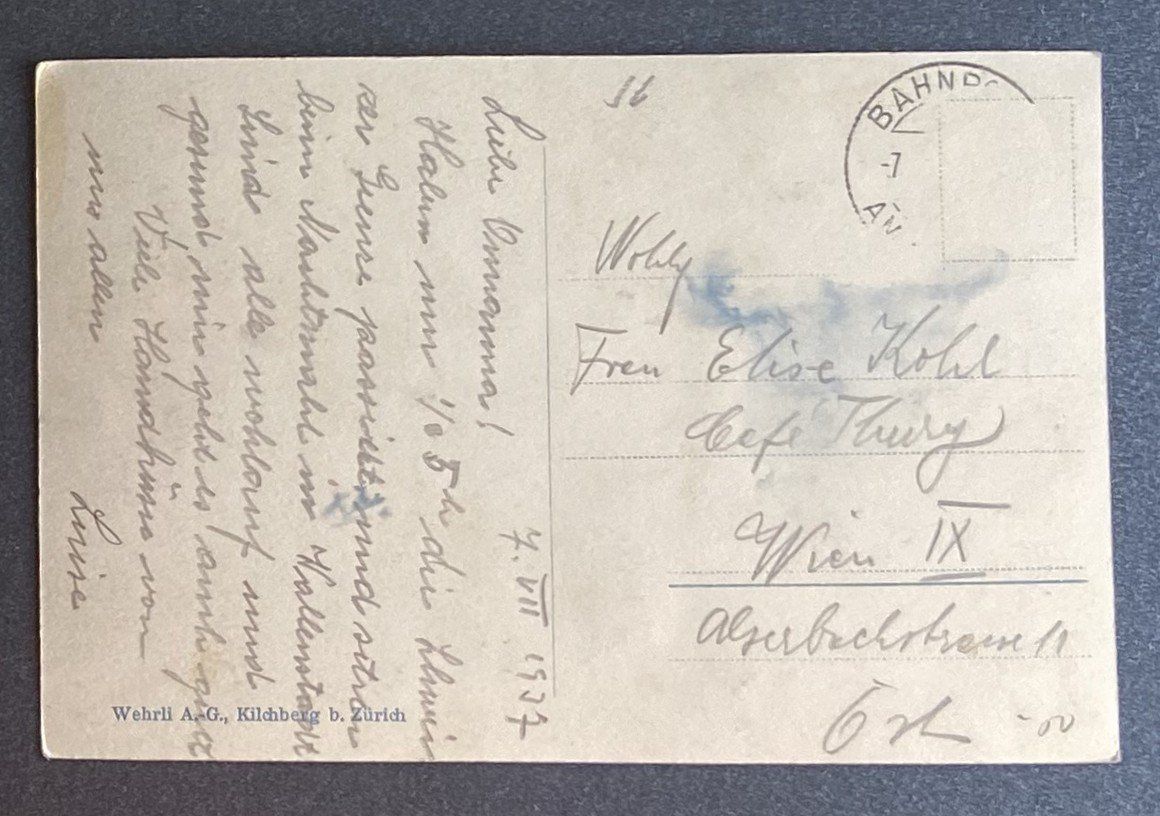 7. VIII 1937
Liebe Omama!
Haben nun ½ 5h die Schwei
zer Grenze passiert und sitzen
beim Nachtmahl in Wallenstadt
Sind alle wohlauf und
gesund, mir geht es auch ganz
Viele Handküsse von
uns allen
Luise
Wehrli A.-G., Kilchberg b. Zürich
BAHNP
-7
AN
Wohlg
Frau Elise Kohl
Cafe Thury
Wien IX
Alserbachstrasse 11
Öst